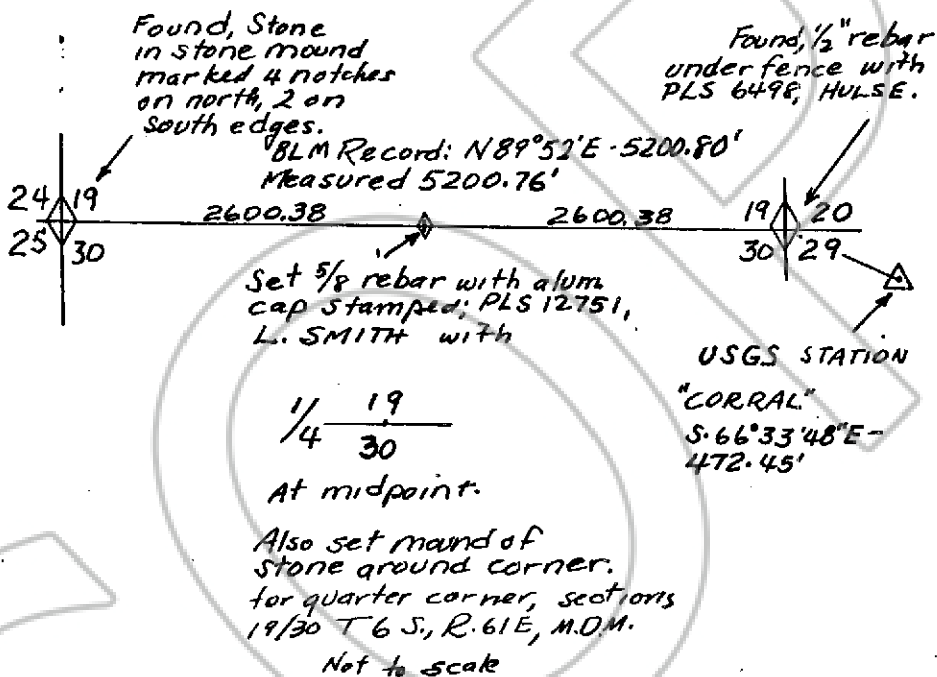 Found, Stone
in stone mound
marked 4 notches
on north, 2 on
South edges.
Found, 1/2" rebar
under fence with
PLS 6498, HULSE.
BLM Record: N89°52'E - 5200.80'
Measured 5200.76'
24 19
25 30
2600.38
2600.38
19 20
30 29
Set 5/8 rebar with alum
cap stamped; PLS 12751,
L. SMITH with
1/4 19
30
At midpoint.
USGS STATION
"CORRAL"
S.66°33'48"E-
472.45'
Also set mound of
stone around corner.
for quarter corner, sections
19/30 T 6 S., R.61E, M.D.M.
Not to scale